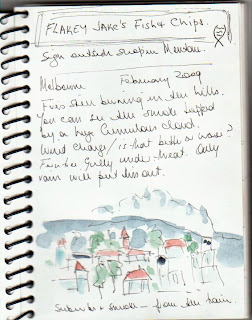 FLAKEY JAKE'S FISH & CHIPS.
Sign outside shop in
Melbourne February 2009
Fires still burning in the hills.
You can see the smoke topped
by a huge Cumulous cloud.
Wind change / is that better or worse?
Ferntree Gully under threat. Only
rain will put this out.
Suburbs & smoke — from the train.